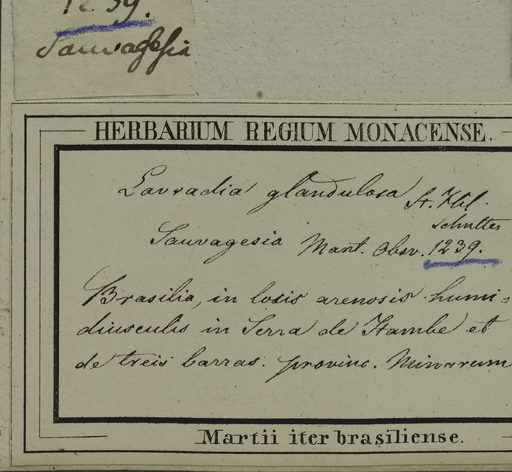 1239.
Sauvagesia
HERBARIUM REGIUM MONACENSE.
Lavradia glandulosa St. Hil.
Schultes
Sauvagesia Mart. Obsv. 1239.
Brasilia, in locis arenosis humi=
diusculis in Serra de Itambe et
de treis barras. provinc. Minarum
Martii iter brasiliense.